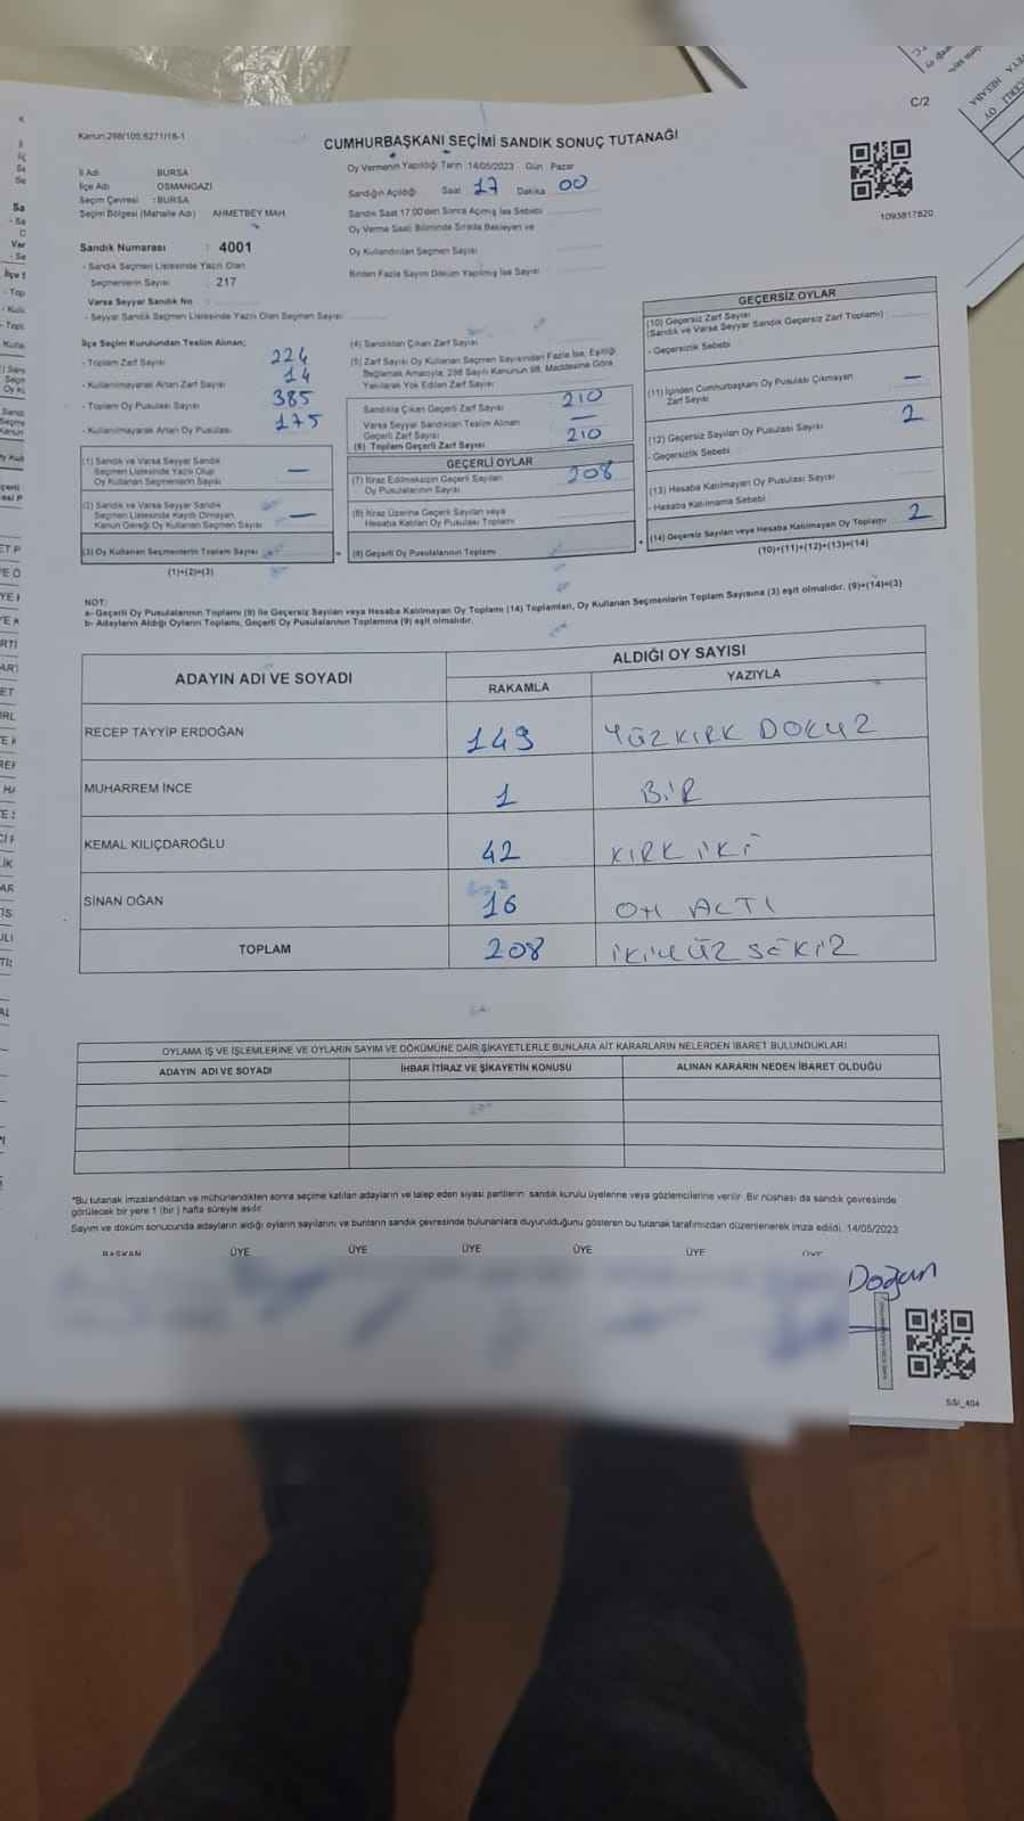 C/2
Kanun:298/105,6271/18-1
CUMHURBAŞKANI SEÇİMİ SANDIK SONUÇ TUTANAĞI
İl Adı BURSA
İlçe Adı OSMANGAZİ
Seçim Çevresi : BURSA
Seçim Bölgesi (Mahalle Adı) AHMETBEY MAH.
Oy Vermenin Yapıldığı Tarih :14/05/2023 Gün : Pazar
Sandığın Açıldığı Saat 17 Dakika 00
Sandık Saat 17:00'den Sonra Açılmış İse Sebebi
Oy Verme Saati Bitiminde Sırada Bekleyen ve
Oy Kullandırılan Seçmen Sayısı
Birden Fazla Sayım Döküm Yapılmış İse Sayısı
1093817820
Sandık Numarası : 4001
- Sandık Seçmen Listesinde Yazılı Olan
Seçmenlerin Sayısı 217
Varsa Seyyar Sandık No
- Seyyar Sandık Seçmen Listesinde Yazılı Olan Seçmen Sayısı
İlçe Seçim Kurulundan Teslim Alınan;
- Toplam Zarf Sayısı 224
- Kullanılmayarak Artan Zarf Sayısı 14
- Toplam Oy Pusulası Sayısı 385
- Kullanılmayarak Artan Oy Pusulası 175
(1) Sandık ve Varsa Seyyar Sandık
Seçmen Listesinde Yazılı Olup
Oy Kullanan Seçmenlerin Sayısı —
(2) Sandık ve Varsa Seyyar Sandık
Seçmen Listesinde Kayıtlı Olmayan,
Kanun Gereği Oy Kullanan Seçmen Sayısı —
(3) Oy Kullanan Seçmenlerin Toplam Sayısı
(1)+(2)=(3)
(4) Sandıktan Çıkan Zarf Sayısı
(5) Zarf Sayısı Oy Kullanan Seçmen Sayısından Fazla İse, Eşitliği
Sağlamak Amacıyla, 298 Sayılı Kanunun 98. Maddesine Göre
Yakılarak Yok Edilen Zarf Sayısı
Sandıkta Çıkan Geçerli Zarf Sayısı 210
Varsa Seyyar Sandıktan Teslim Alınan
Geçerli Zarf Sayısı —
(6) Toplam Geçerli Zarf Sayısı 210
GEÇERLİ OYLAR
(7) İtiraz Edilmeksizin Geçerli Sayılan
Oy Pusulalarının Sayısı 208
(8) İtiraz Üzerine Geçerli Sayılan veya
Hesaba Katılan Oy Pusulası Toplamı
(9) Geçerli Oy Pusulalarının Toplamı
GEÇERSİZ OYLAR
(10) Geçersiz Zarf Sayısı
(Sandık ve Varsa Seyyar Sandık Geçersiz Zarf Toplamı)
- Geçersizlik Sebebi
(11) İçinden Cumhurbaşkanı Oy Pusulası Çıkmayan
Zarf Sayısı —
(12) Geçersiz Sayılan Oy Pusulası Sayısı 2
- Geçersizlik Sebebi
(13) Hesaba Katılmayan Oy Pusulası Sayısı
- Hesaba Katılmama Sebebi
(14) Geçersiz Sayılan veya Hesaba Katılmayan Oy Toplamı 2
(10)+(11)+(12)+(13)=(14)
NOT:
a- Geçerli Oy Pusulalarının Toplamı (9) ile Geçersiz Sayılan veya Hesaba Katılmayan Oy Toplamı (14) Toplamları, Oy Kullanan Seçmenlerin Toplam Sayısına (3) eşit olmalıdır. (9)+(14)=(3)
b- Adayların Aldığı Oyların Toplamı, Geçerli Oy Pusulalarının Toplamına (9) eşit olmalıdır.
ADAYIN ADI VE SOYADI ALDIĞI OY SAYISI
RAKAMLA YAZIYLA
RECEP TAYYİP ERDOĞAN 149 YÜZKIRK DOKUZ
MUHARREM İNCE 1 BİR
KEMAL KILIÇDAROĞLU 42 KIRK İKİ
SİNAN OĞAN 16 ON ALTI
TOPLAM 208 İKİYÜZ SEKİZ
OYLAMA İŞ VE İŞLEMLERİNE VE OYLARIN SAYIM VE DÖKÜMÜNE DAİR ŞİKAYETLERLE BUNLARA AİT KARARLARIN NELERDEN İBARET BULUNDUKLARI
ADAYIN ADI VE SOYADI İHBAR İTİRAZ VE ŞİKAYETİN KONUSU ALINAN KARARIN NEDEN İBARET OLDUĞU
*Bu tutanak imzalandıktan ve mühürlendikten sonra seçime katılan adayların ve talep eden siyasi partilerin sandık kurulu üyelerine veya gözlemcilerine verilir. Bir nüshası da sandık çevresinde
görülecek bir yere 1 (bir) hafta süreyle asılır.
Sayım ve döküm sonucunda adayların aldığı oyların sayılarını ve bunların sandık çevresinde bulunanlara duyurulduğunu gösteren bu tutanak tarafımızdan düzenlenerek imza edildi. 14/05/2023
BAŞKAN ÜYE ÜYE ÜYE ÜYE ÜYE ÜYE
Doğan